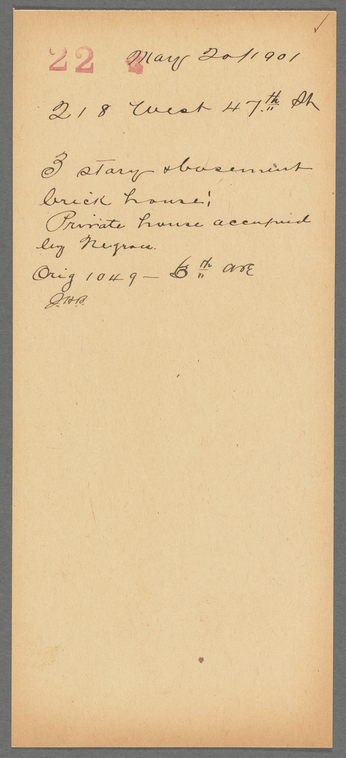 22 May 20/1901
218 West 47th St
3 story & basement
brick house;
Private house occupied
by Negroes.
Orig 1049 — 6th Ave